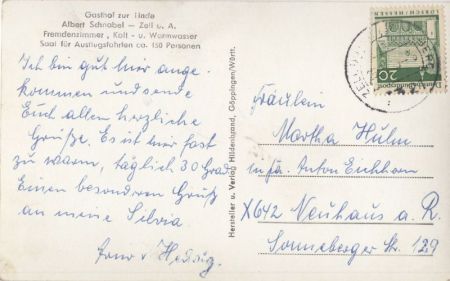 Gasthof zur Linde
Albert Schnabel – Zell u. A.
Fremdenzimmer, Kalt - u. Warmwasser
Saal für Ausflugsfahrten ca. 150 Personen
Ich bin gut hier ange-
kommen und sende
Euch allen herzliche
Grüße. Es ist hier fast
zu warm, täglich 30 Grad.
Einen besonderen Gruß
an meine Silvia
Hersteller u. Verlag Hildenbrand, Göppingen/Württ.
Fräulein
Martha Hulm
in fa. Anton Eichhorn
X642 Neuhaus a. R.
Sonneberger Str. 129
20
Deutsche Bundespost